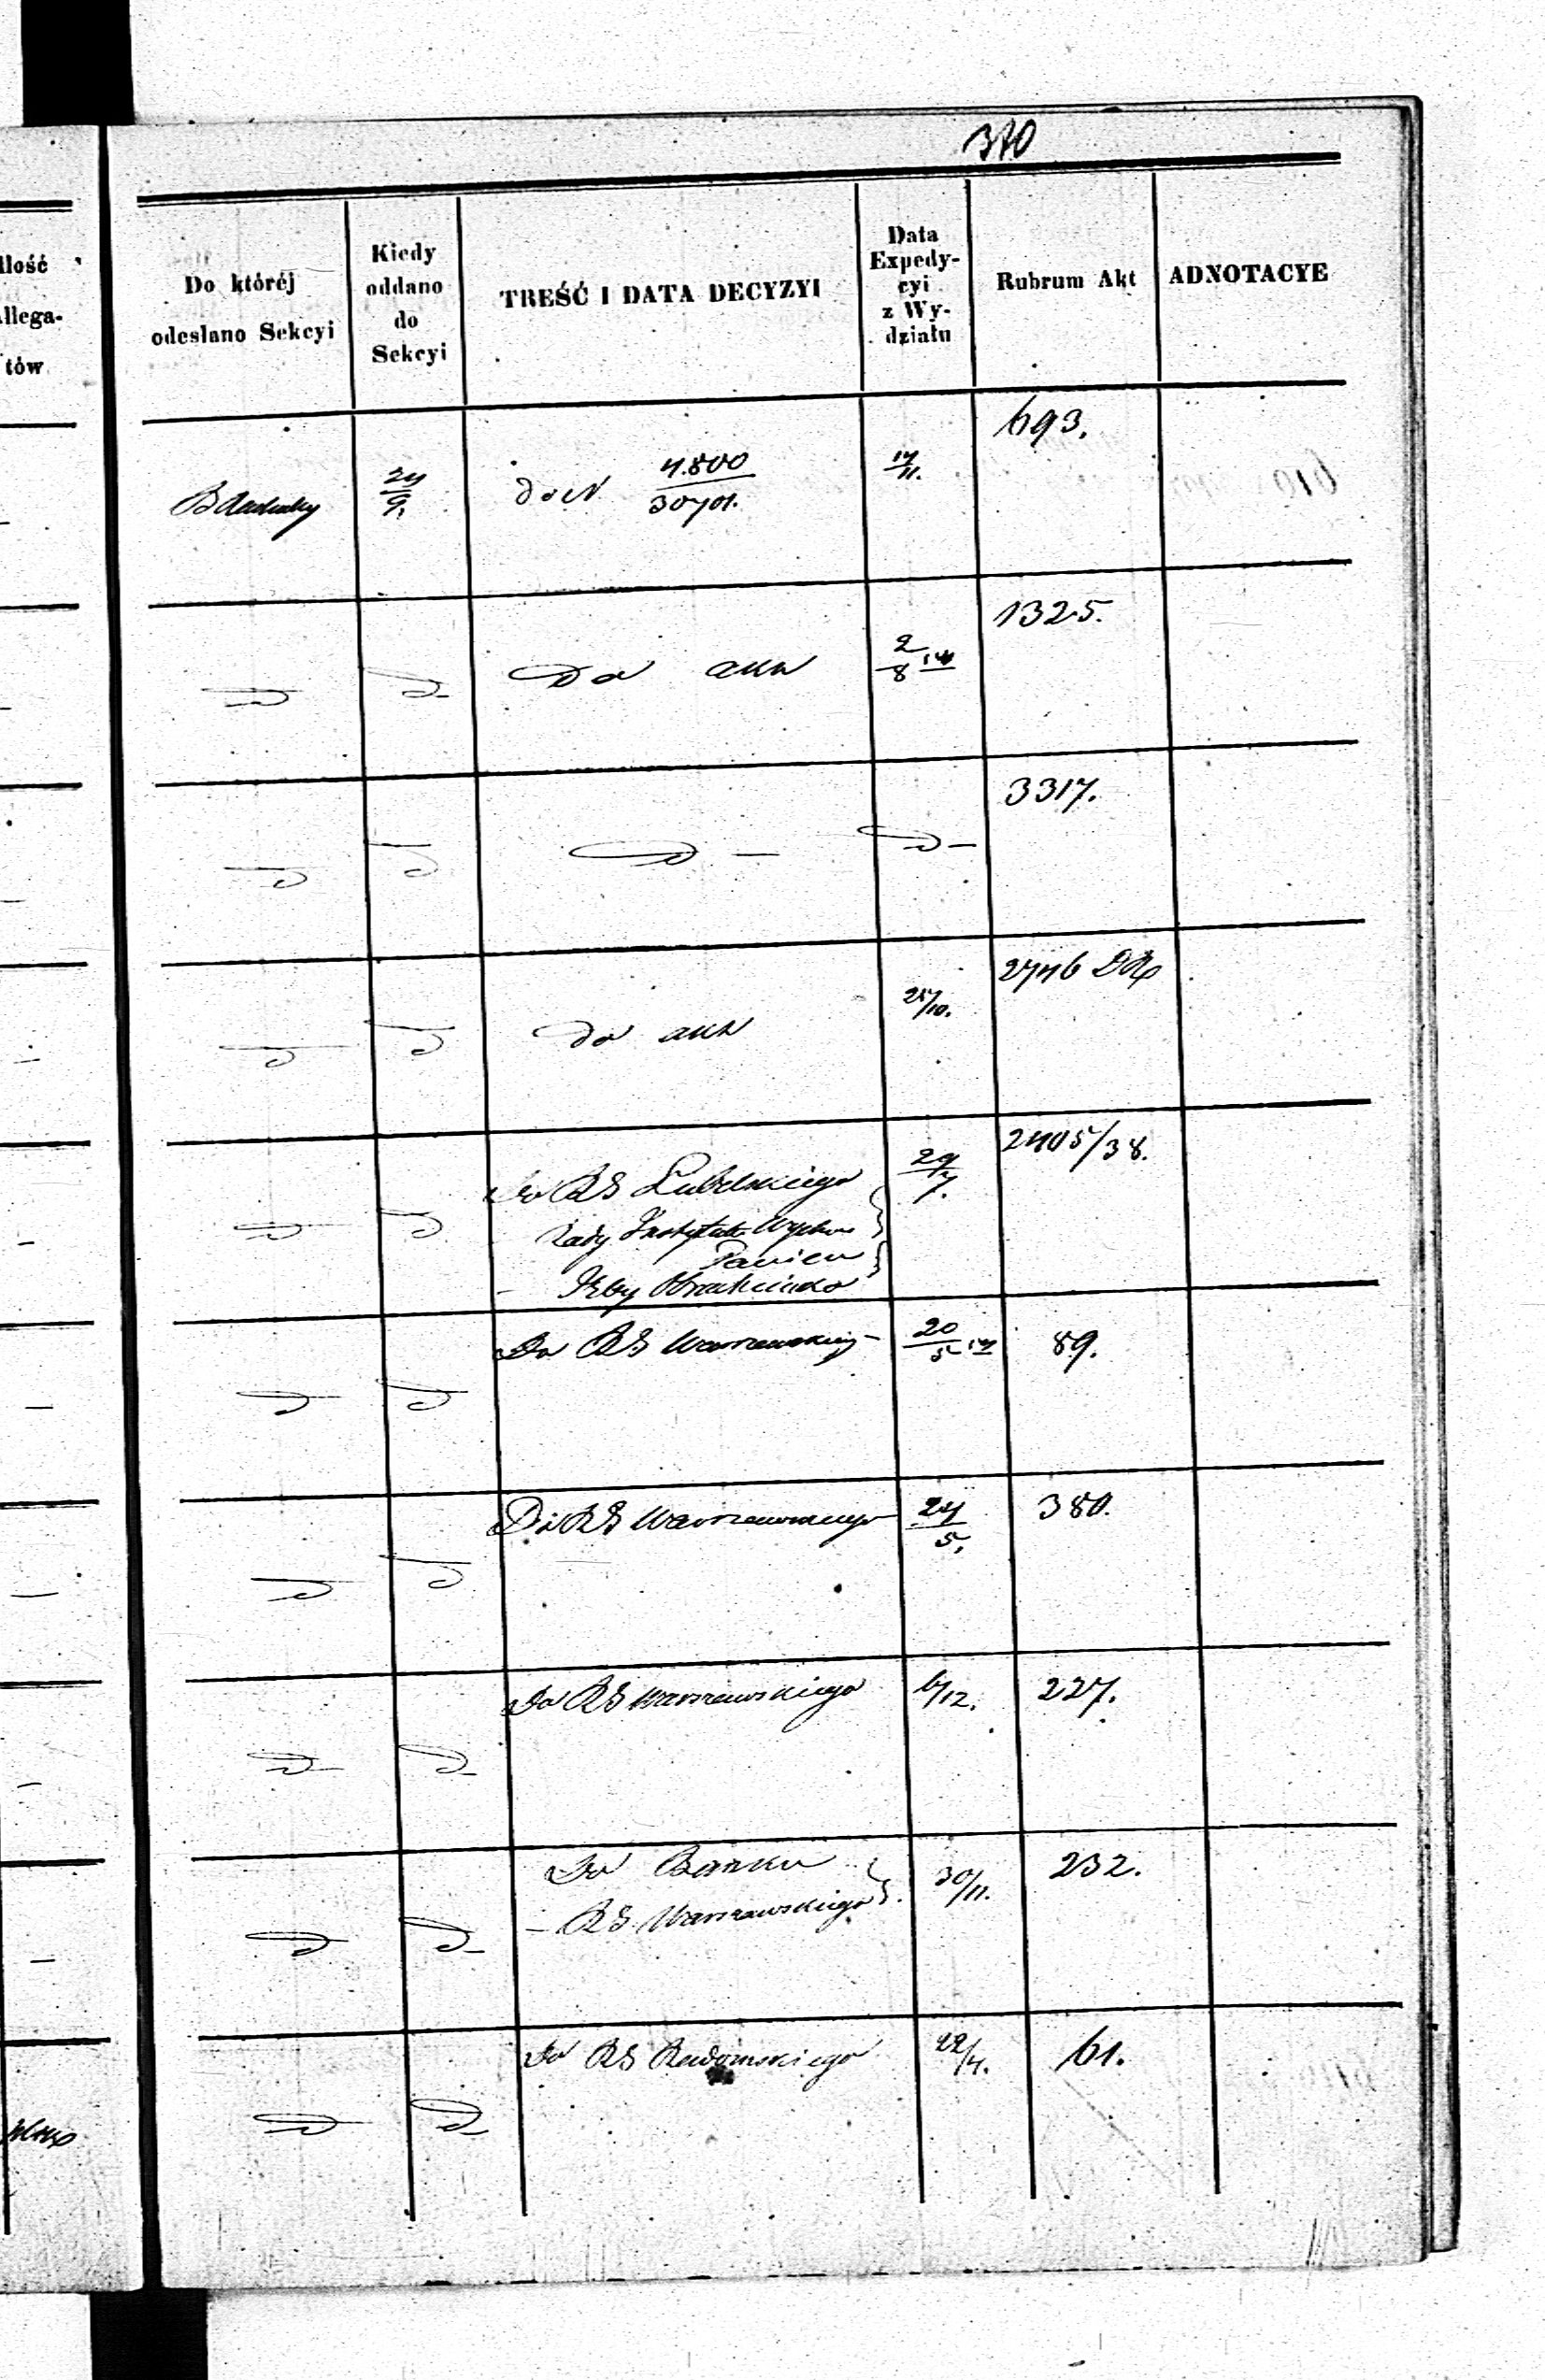 370
Ilość
Allega-
tów
Do któréj
odesłano Sekcyi
Kiedy
oddano
do
Sekcyi
TREŚĆ I DATA DECYZYI
Data
Expedy-
cyi
z Wy-
działu
Rubrum Akt
ADNOTACYE
693.
24/9.
do N 4.800/30701.
17/11.
1325.
Do akt
2/8
3317.
2746
do akt
25/10.
2405/38.
Do RG Lubelskiego
29/7.
Rady Instytutu Wycho
Panien
Izby Obrachunko
Do RG Warszawskieg
20/5
89.
Do RG Warszawskiego
24/5.
380.
Do RG Warszawskiego
6/12.
227.
Do Banku
- RG Warszawskiego
30/11.
232.
Do RG Radomskiego
22/4.
61.